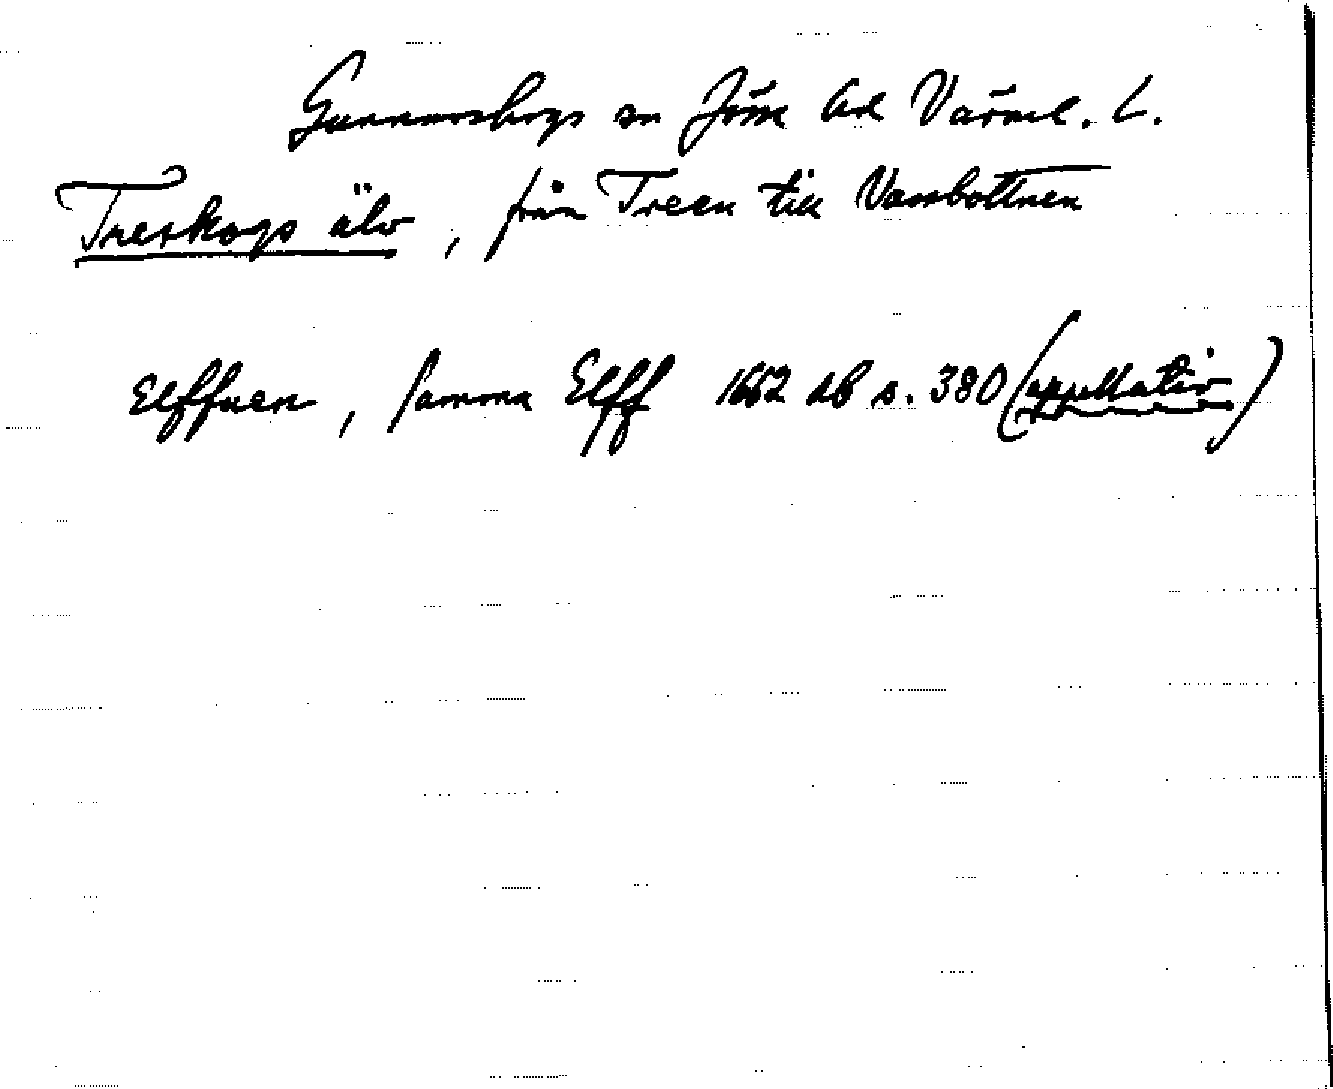 Gunnarskogs sn Jösse hd Värml. L.
Treskogs älv, från Treen till Vassbottnen
Elffuen, samma Elff 1662 db s. 380 (appellativ)